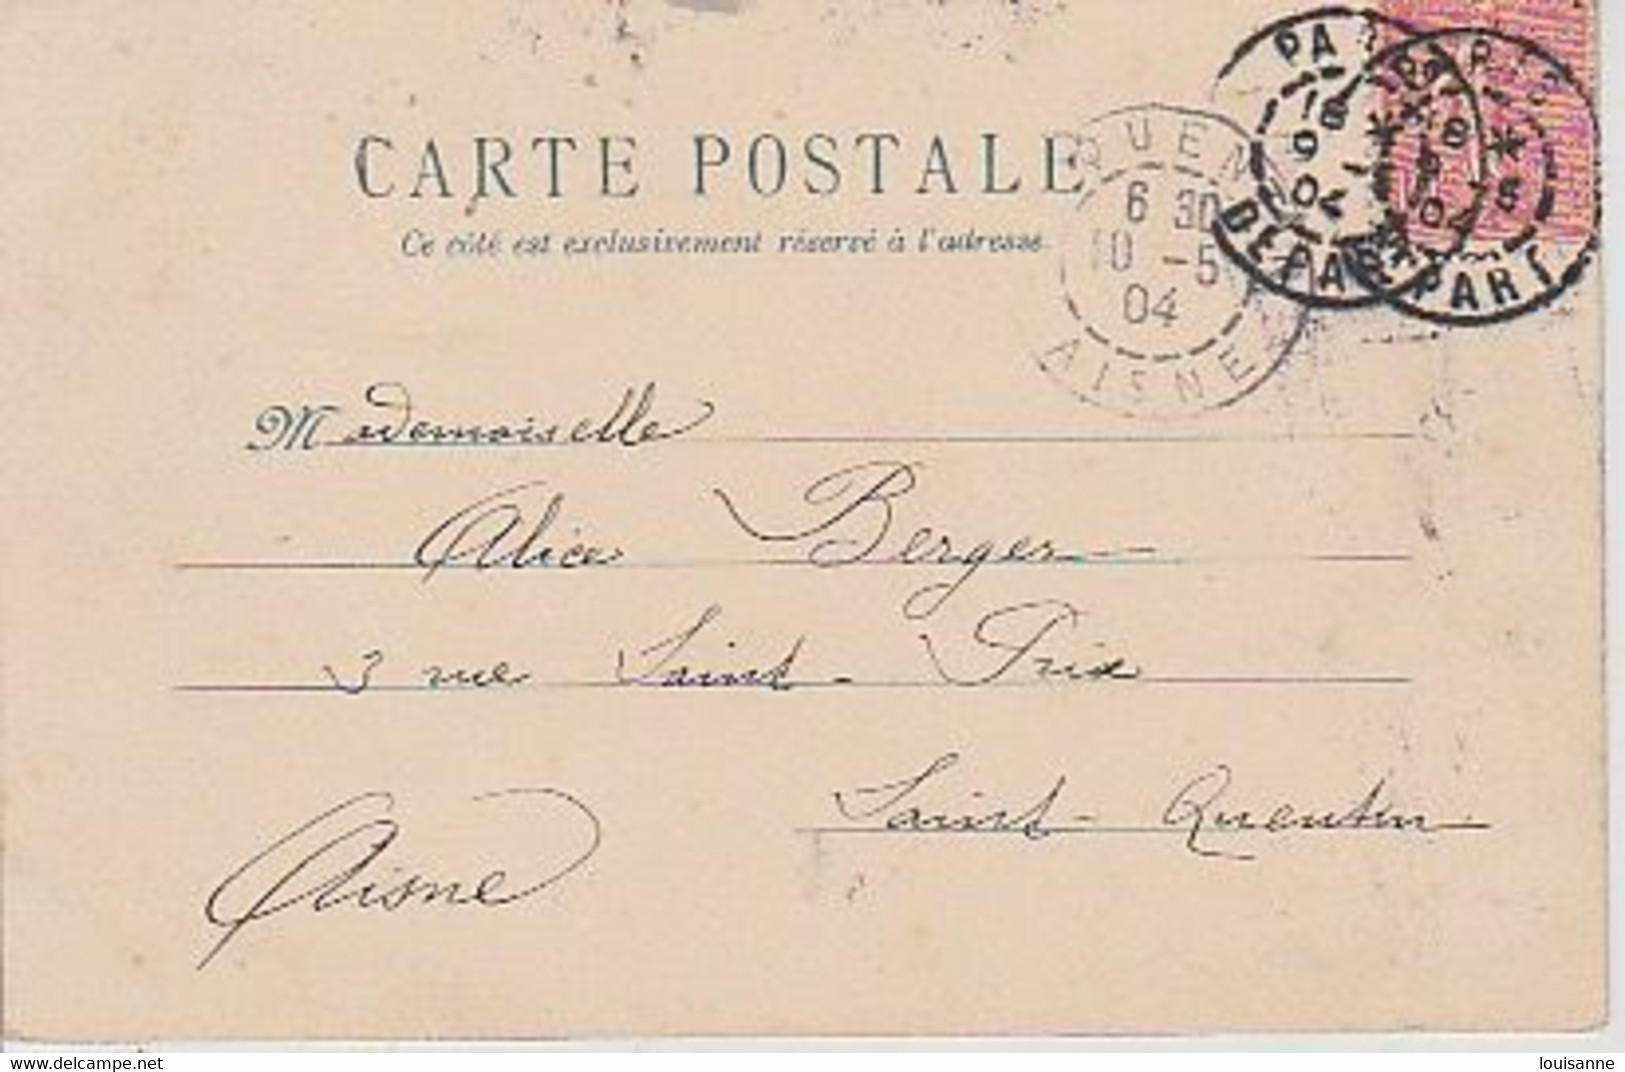 CARTE POSTALE
Ce côté est exclusivement réservé à l'adresse.
QUEN
6 30
10 -5
04
AISNE
PAR
18
9
04
DEPAR
18
5
04
DEPART
Mademoiselle
Alice Berger
3 rue Saint-Prix
Saint-Quentin
Aisne
delcampe.net
louisanne